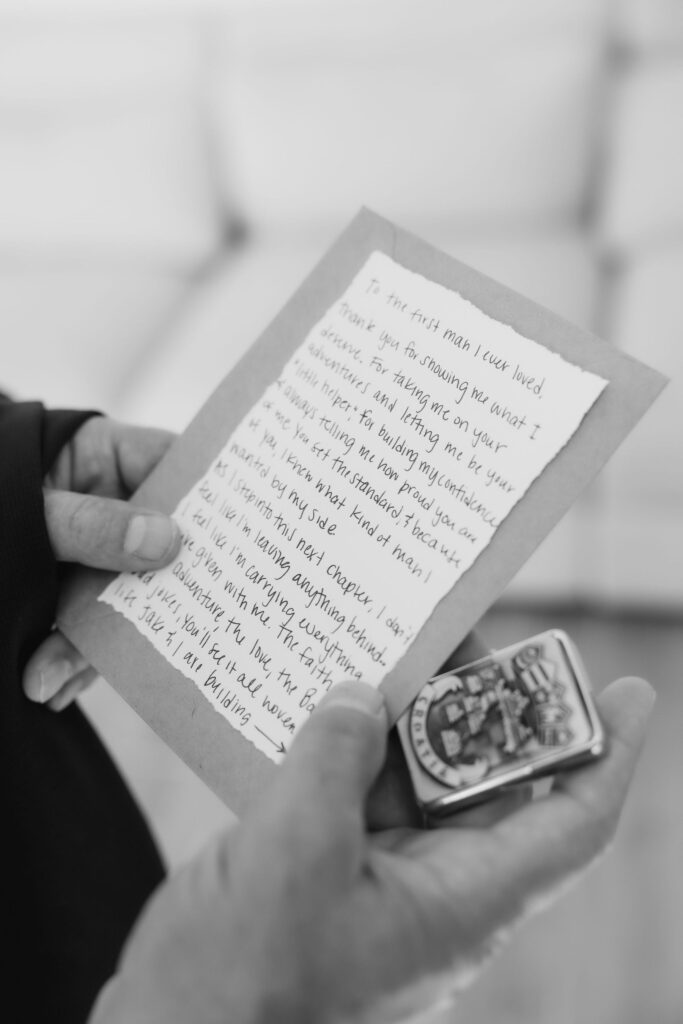 To the first man I ever loved,
thank you for showing me what I
deserve. For taking me on your
adventures and letting me be your
"little helper," for building my confidence
& always telling me how proud you are
of me. You set the standard, & because
of you, I knew what kind of man I
wanted by my side.
As I step into this next chapter, I don't
feel like I'm leaving anything behind..
I feel like I'm carrying everything
given with me. The faith
adventure, the love, the
jokes. You'll see it all woven
life Jake & I are building →